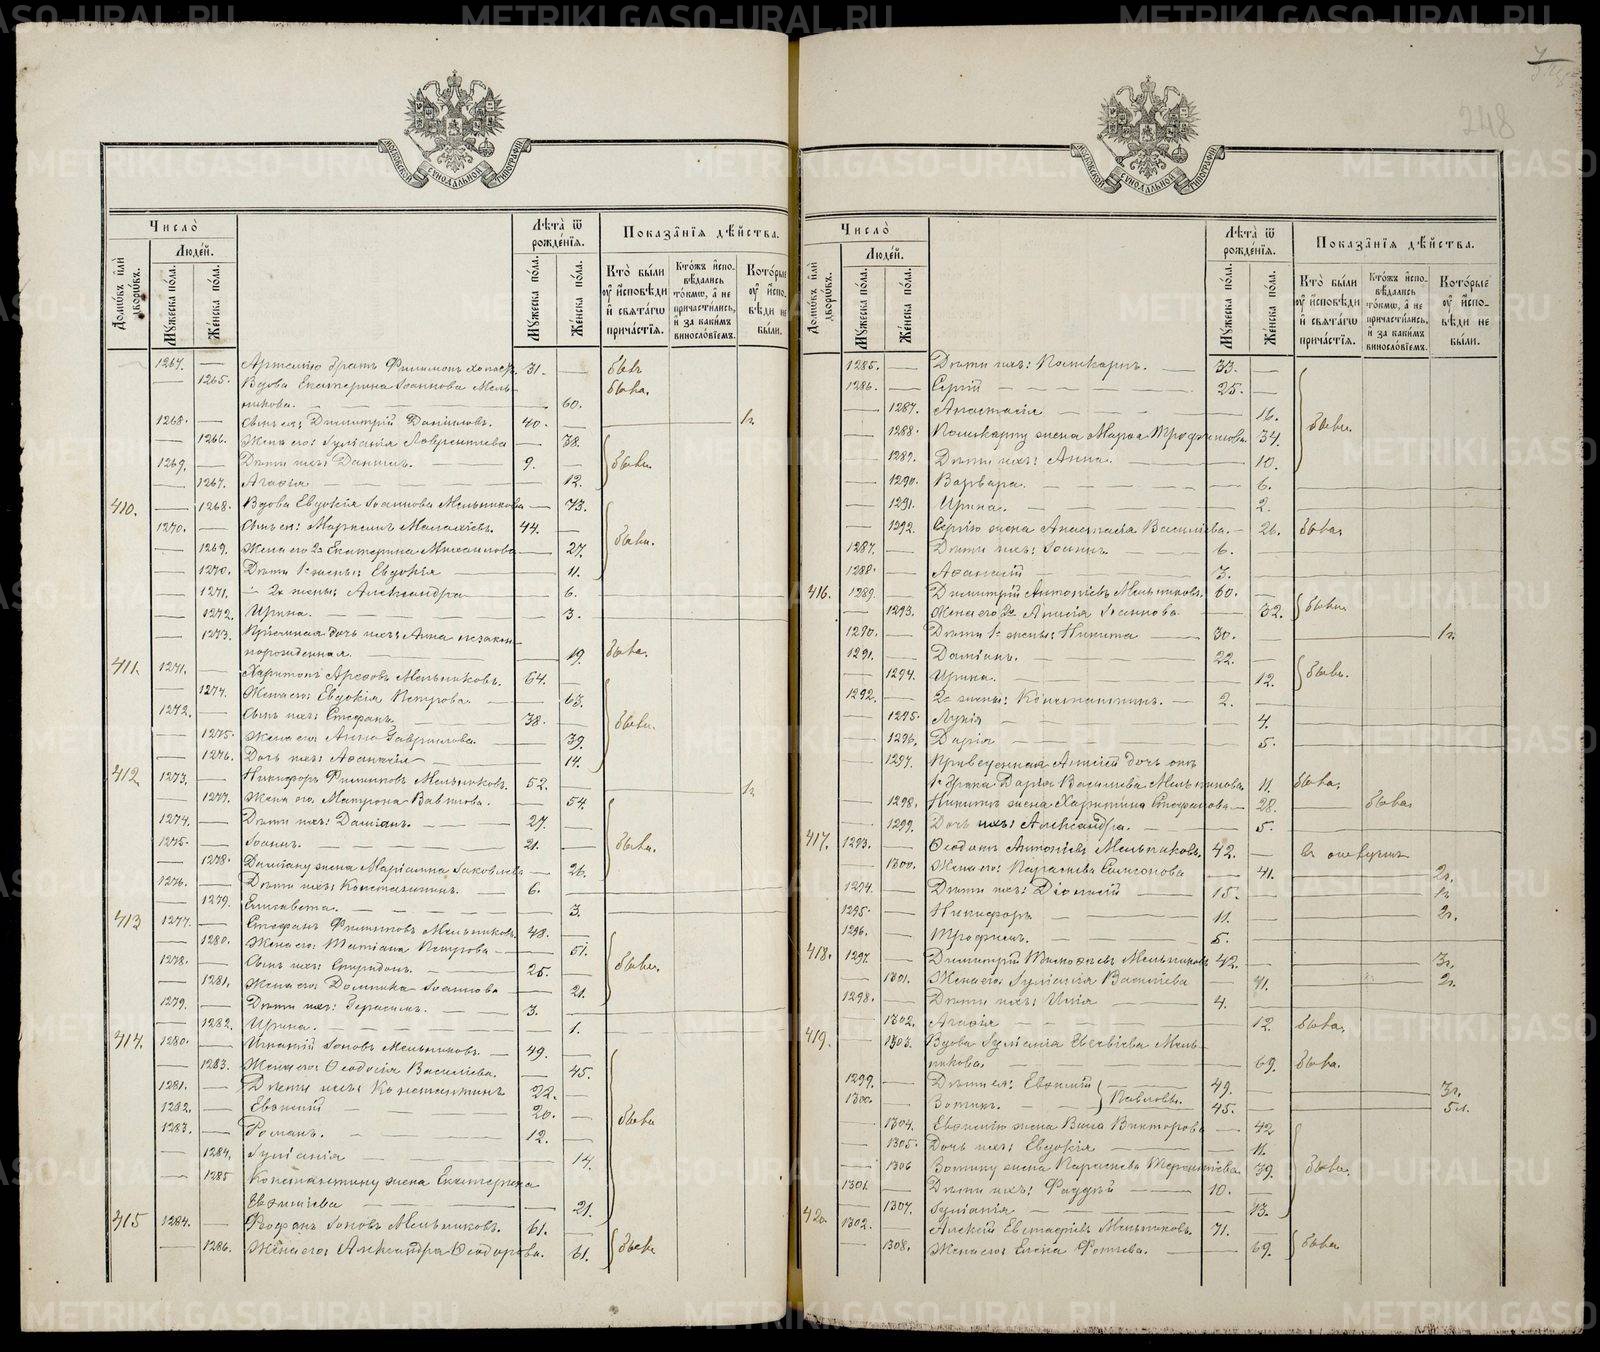 МОСКОВСКОЙ СѴНОДАЛЬНОЙ ТИПОГРАФІИ
Число̀
Лѣта̀ ѿ рожде́нїѧ.
Показа́нїѧ дѣ́йства.
Домѡ́въ и҆лѝ дворѡ́въ.
Люде́й.
Мꙋ́жеска по́ла.
Же́нска по́ла.
Мꙋ́жеска по́ла.
Же́нска по́ла.
Кто̀ бы́ли ᲂу҆ и҆сповѣ́ди и҆ свѧта́гѡ прича́стїѧ.
Кто́жъ и҆сповѣ́дались то́кмѡ, а҆ не причасти́лись, и҆ за каки́мъ винословїемъ.
Кото́рые ᲂу҆ и҆сповѣ́ди не бы́ли.
1267. — Филимонъ 31. — бывъ
— 1265. Вдова Екатерина Іоаннова Мель-
никова. — 60. быва.
1268. — Сынъ ея: Димитрій Даніиловъ. 40. — 1г.
— 1266. Жена его: Іуліанія Лаврентіева — 38.
1269. — Дѣти ихъ: Даніилъ. 9. — бывш.
— 1267. Агафія — 12.
410. — 1268. Вдова Евдокія Іоаннова Мельникова — 73.
1270. — Сынъ ея: 44. —
— 1269. Жена его 2я Екатерина — 27. бывш.
— 1270. Дѣти 1й жены: Евдокія — 11.
— 1271. — 2й жены: Александра — 6.
— 1272. Ирина. — 3.
— 1273. дочь ихъ: Анна незакон-
норожденная. — 19. быва.
411. 1271. — Харитонъ Мельниковъ. 64. —
— 1274. Жена его: Евдокія Петрова. — 63.
1272. — Сынъ ихъ: Стефанъ. 38. — бывш.
— 1275. Жена его Анна Гаврилова. — 39.
— 1276. Дочь ихъ: — 14.
412 1273. — Никифоръ Филиповъ Мельниковъ. 52. — 1г.
— 1277. Жена его: Матрона — 54.
1274. — Дѣти ихъ: Даміанъ. 27. —
1275. — Іоаннъ. 21. — бывш.
— 1278. Даміану жена Маріанна Іаковлева — 26.
1276. — Дѣти ихъ: Константинъ. 6. —
— 1279. Елисавета. — 3.
413 1277. — Стефанъ Филиповъ Мельниковъ. 48. —
— 1280. Жена его: Татіана Петрова — 51.
1278. — Сынъ ихъ: Спиридонъ. 25. — бывш.
— 1281. Жена его: Домника Іоаннова — 21.
1279. — Дѣти ихъ: Герасимъ. 3. —
— 1282. Ирина. — 1.
414. 1280. — Игнатій Іоновъ Мельниковъ. 49. —
— 1283. Жена его: Ѳеодосія Василіева. — 45.
1281. — Дѣти ихъ: Константинъ 22. —
1282. — Евѳимій 20. — бывш
1283. — Романъ. 12. —
— 1284. Іуліанія — 14.
— 1285 Константину жена Екатерина
Евѳиміева — 21.
415 1284. — Іоновъ Мельниковъ. 61. —
— 1286. Жена его: Александра Ѳеодорова. — 61. бывш
248
МОСКОВСКОЙ СѴНОДАЛЬНОЙ ТИПОГРАФІИ
Число̀
Лѣта̀ ѿ рожде́нїѧ.
Показа́нїѧ дѣ́йства.
Домѡ́въ и҆лѝ дворѡ́въ.
Люде́й.
Мꙋ́жеска по́ла.
Же́нска по́ла.
Мꙋ́жеска по́ла.
Же́нска по́ла.
Кто̀ бы́ли ᲂу҆ и҆сповѣ́ди и҆ свѧта́гѡ прича́стїѧ.
Кто́жъ и҆сповѣ́дались то́кмѡ, а҆ не причасти́лись, и҆ за каки́мъ винословїемъ.
Кото́рые ᲂу҆ и҆сповѣ́ди не бы́ли.
1285. — Дѣти ихъ: Поликарпъ. 33. —
1286. — Сергій 25. —
— 1287. Анастасія — 16. бывш.
— 1288. Поликарпу жена Марѳа Трофимова. 34.
— 1289. Дѣти ихъ: Анна. — 10.
— 1290. Варвара. — 6.
— 1291. Ирина. — 2.
— 1292. Сергію жена Анастасія Василіева. — 26. быва.
1287. — Дѣти ихъ: Іоаннъ 6. —
1288. — Аѳанасій 3. —
416. 1289. — Димитрій Антоніевъ Мельниковъ. 60. —
— 1293. Жена его 2я Анисія Іоаннова — 32. бывш
1290. — Дѣти 1й жены: Никита — 30. — 1г.
1291. — Даміанъ. 22. —
— 1294. Ирина. — 12. бывш.
1292. — 2й жены: Константинъ. 2. —
— 1295. Лукія — 4.
— 1296. Дарія — 5.
— 1297. Приведенная Анисіей дочь отъ
1го брака Дарія Василіева Мельникова. 11. быва.
— 1298. Никитѣ жена Харитина Стефанова — 28. — быва.
— 1299. Дочь ихъ: Александра. — 5.
417. 1293. — Ѳеодотъ Антоніевъ Мельниковъ. 42. — въ отлучкѣ
— 1300. Жена его: Параскева Самсонова — 41. 2г.
1294. — Дѣти ихъ: Діонисій 15. — 1г.
1295. — Никифоръ 11. — 2г.
1296. — Трофимъ. 5. —
418. 1297. — Димитрій Мельниковъ 42. — 3г.
— 1301. Жена его: Іуліанія Василіева — 41. 2г.
1298. — Дѣти ихъ: Илія 4. —
— 1302. Агафія — 12. быва.
419. — 1303. Вдова Іуліанія Евсевіева Мель-
никова. — 69. быва.
1299. — Дѣти ея: Евѳимій 49. — 3г.
1300. — Зотикъ. Павловы. 45. — 5л.
— 1304. Евѳимію жена Васса Викторова — 42
— 1305. Дочь ихъ: Евдокія — 11.
— 1306 Зотику жена Параскева Терентіева. 39. бывш.
1301. — Дѣти ихъ: Фаддей 10. —
— 1307. Іуліанія — 13.
420. 1302. — Алексій Евстафіевъ Мельниковъ. 71. —
— 1308. Жена его: Елена Фотіева. — 69. бывш
METRIKI.GASO-URAL.RU